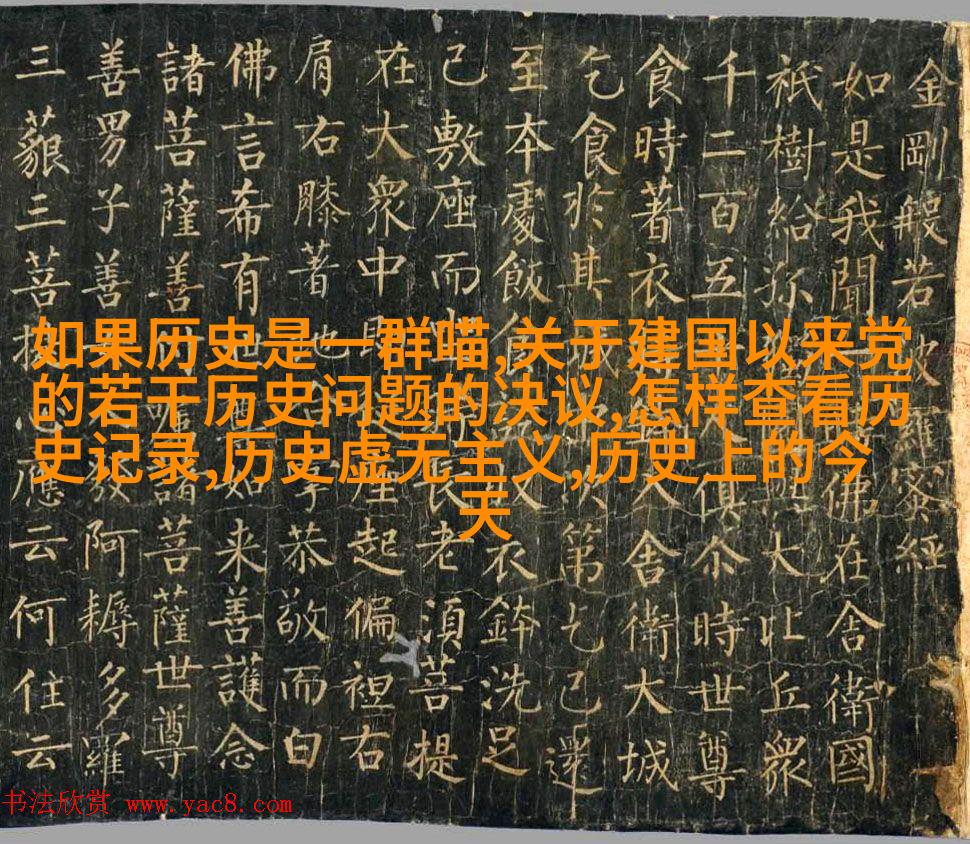 金剛般若波羅蜜經
如是我聞一佛在舍衛國
祇樹給孤大比丘眾
千二百五人俱尒時世尊
食時著衣入舍衛大城
乞食於其城次第乞已還
至本處飯食收衣鉢洗足
已敷座而坐長老須菩提
在大眾中即從座起偏袒右
肩右膝著地掌恭敬而白
佛言希有世尊如来善護念
諸菩薩善付囑諸菩薩世尊
善男子善發阿耨多羅
三藐三菩提心應云何住云
如果历史是一群喵,关于建国以来党
的若干历史问题的决议,怎样查看历
史记录,历史虚无主义,历史上的今
天
书法欣赏 www.yac8.com